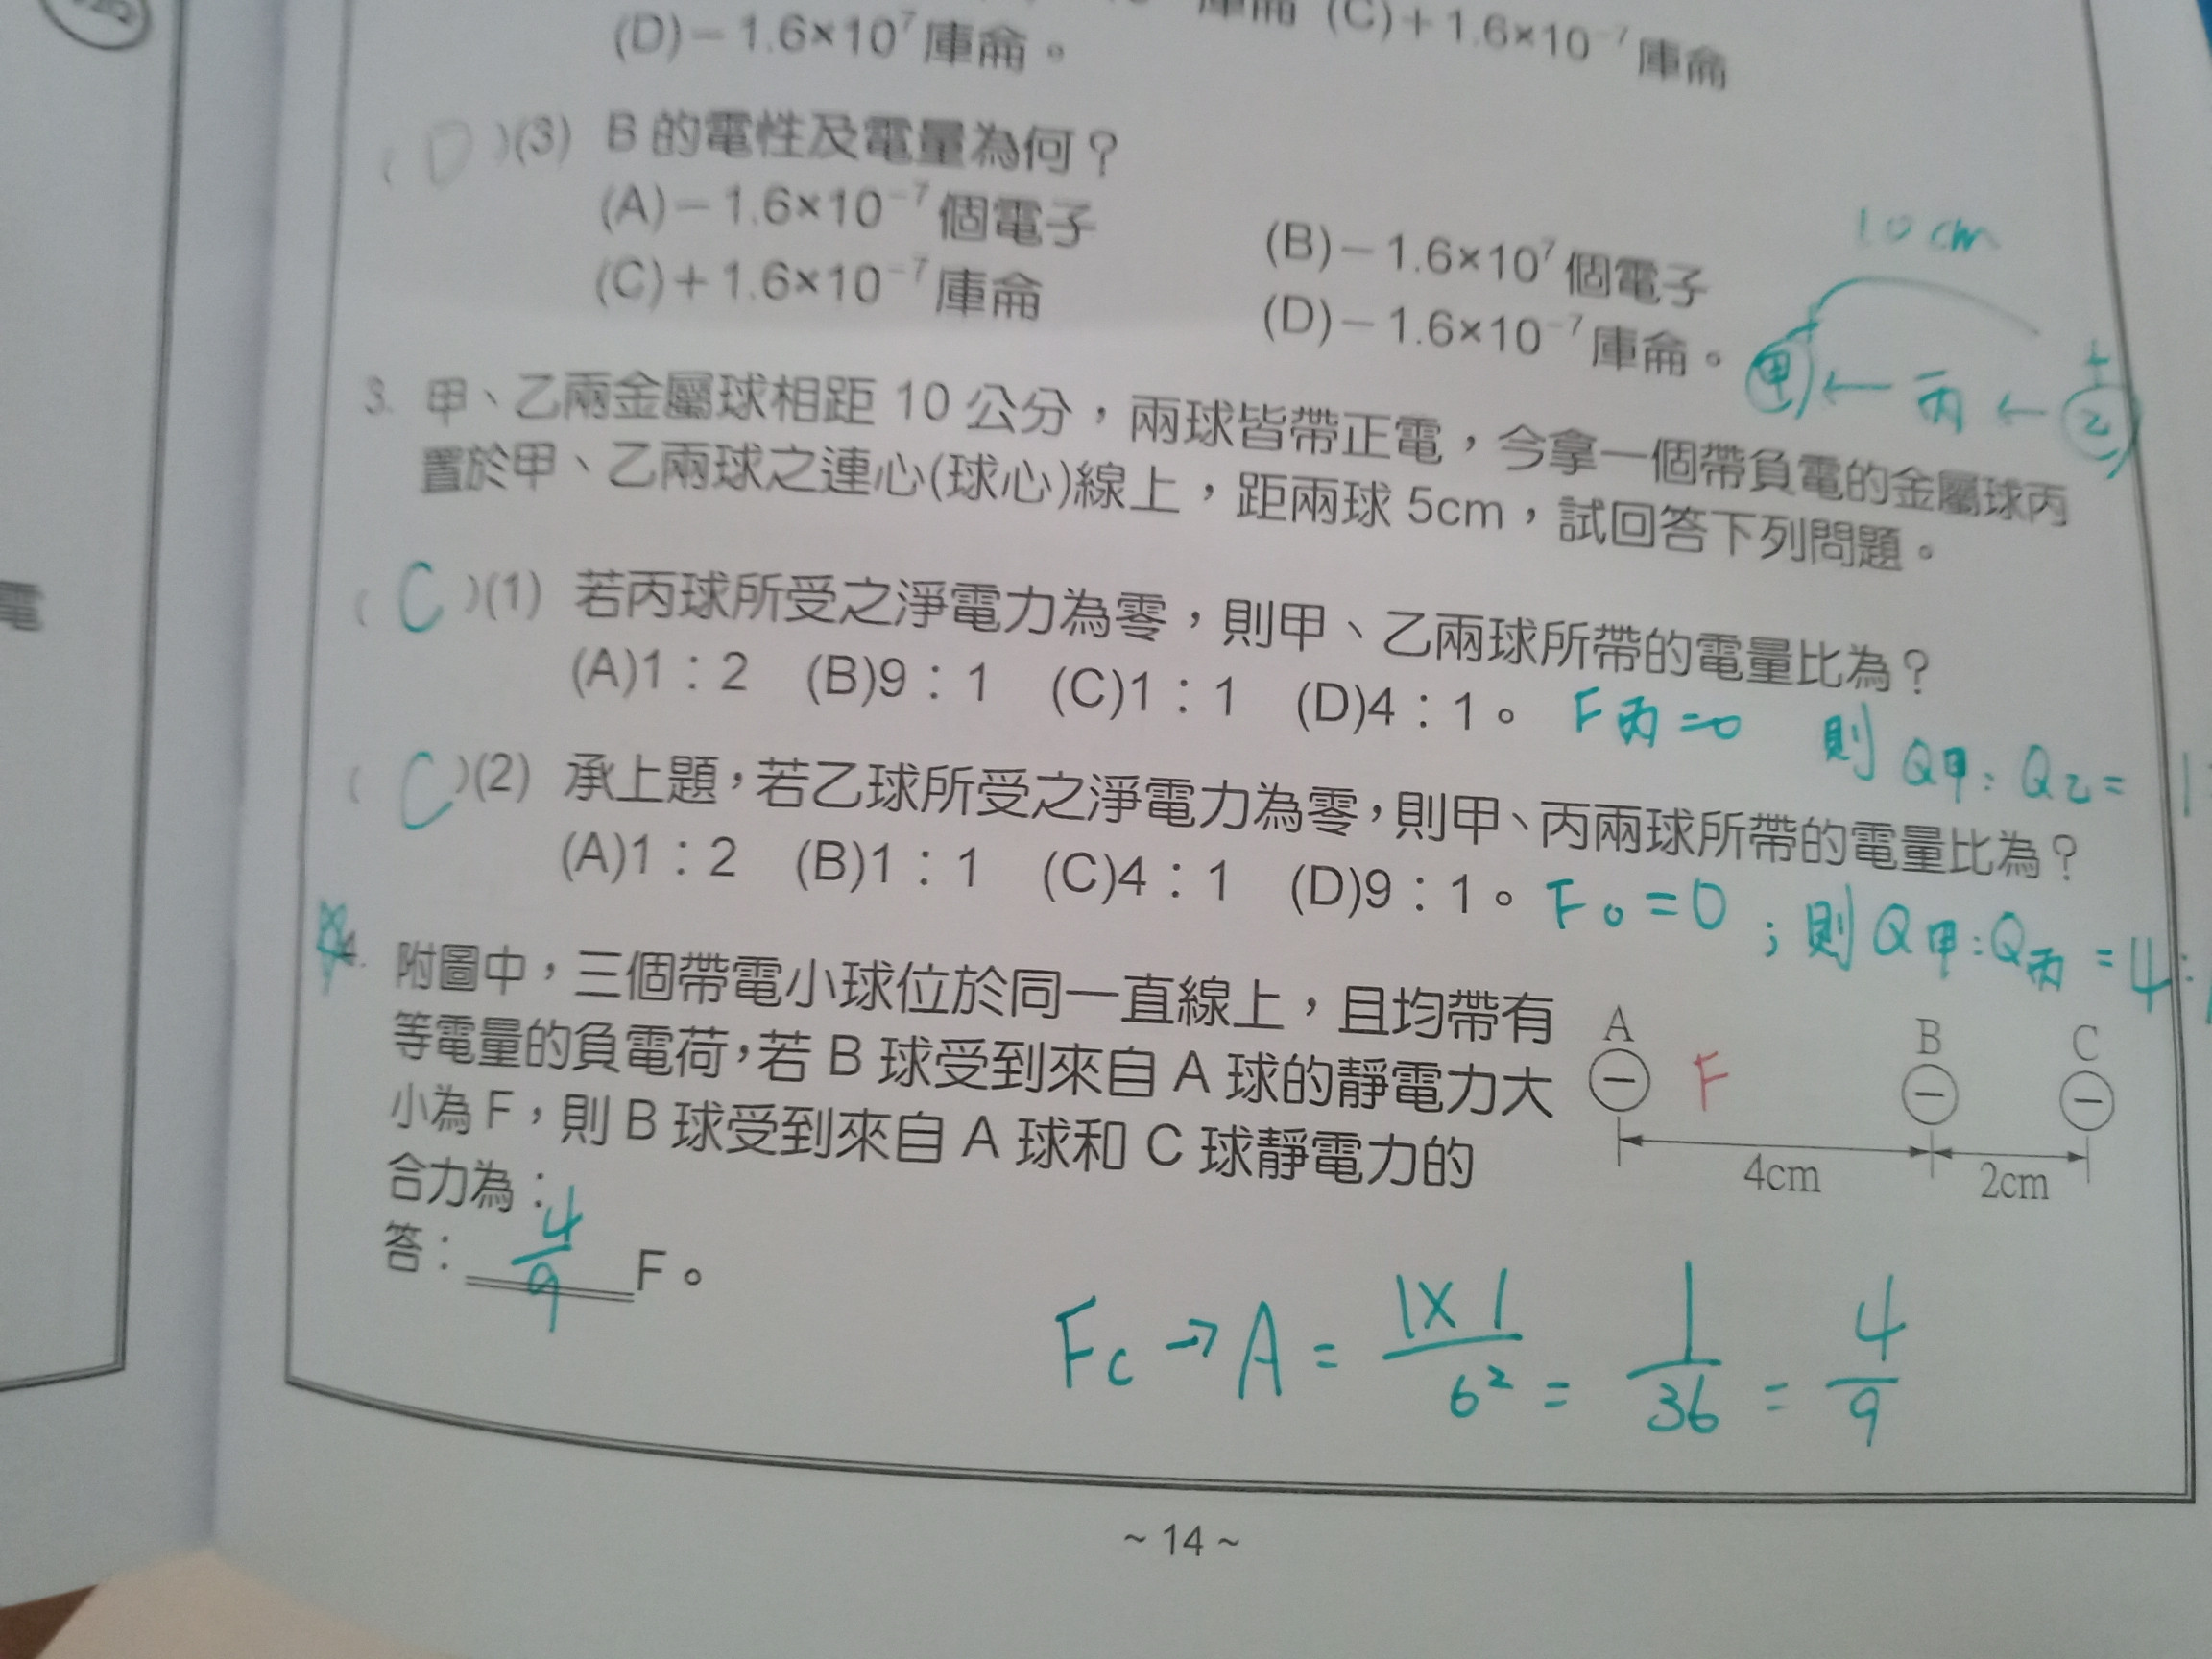 庫侖 (C)＋1.6×10⁻⁷ 庫侖
(D)－1.6×10⁷ 庫侖。
( D )(3) B 的電性及電量為何？
(A)－1.6×10⁻⁷ 個電子 (B)－1.6×10⁷ 個電子
(C)＋1.6×10⁻⁷ 庫侖 (D)－1.6×10⁻⁷ 庫侖。
10 cm
甲 ← 丙 ← 乙
＋
3. 甲、乙兩金屬球相距 10 公分，兩球皆帶正電，今拿一個帶負電的金屬球丙
置於甲、乙兩球之連心(球心)線上，距兩球 5cm，試回答下列問題。
( C )(1) 若丙球所受之淨電力為零，則甲、乙兩球所帶的電量比為？
(A)1：2 (B)9：1 (C)1：1 (D)4：1。
F丙=0 則 Q甲:Q乙= 1:
( C )(2) 承上題，若乙球所受之淨電力為零，則甲、丙兩球所帶的電量比為？
(A)1：2 (B)1：1 (C)4：1 (D)9：1。
F₀=0 ; 則 Q甲:Q丙 = 4:
4. 附圖中，三個帶電小球位於同一直線上，且均帶有
等電量的負電荷，若 B 球受到來自 A 球的靜電力大
小為 F，則 B 球受到來自 A 球和 C 球靜電力的
合力為：
答： 4/9 F。
A F B C
－ － －
4cm 2cm
Fc → A = 1×1/6² = 1/36 = 4/9
~ 14 ~
電